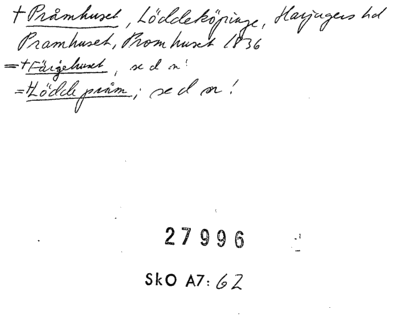 + Pråmhuset, Löddeköpinge, Harjagers hd
Pramhuset, Promhuset 1836
= + Färgehuset, se d n!
= Lödde pråm; se d n!
27996
SkO A7: 62